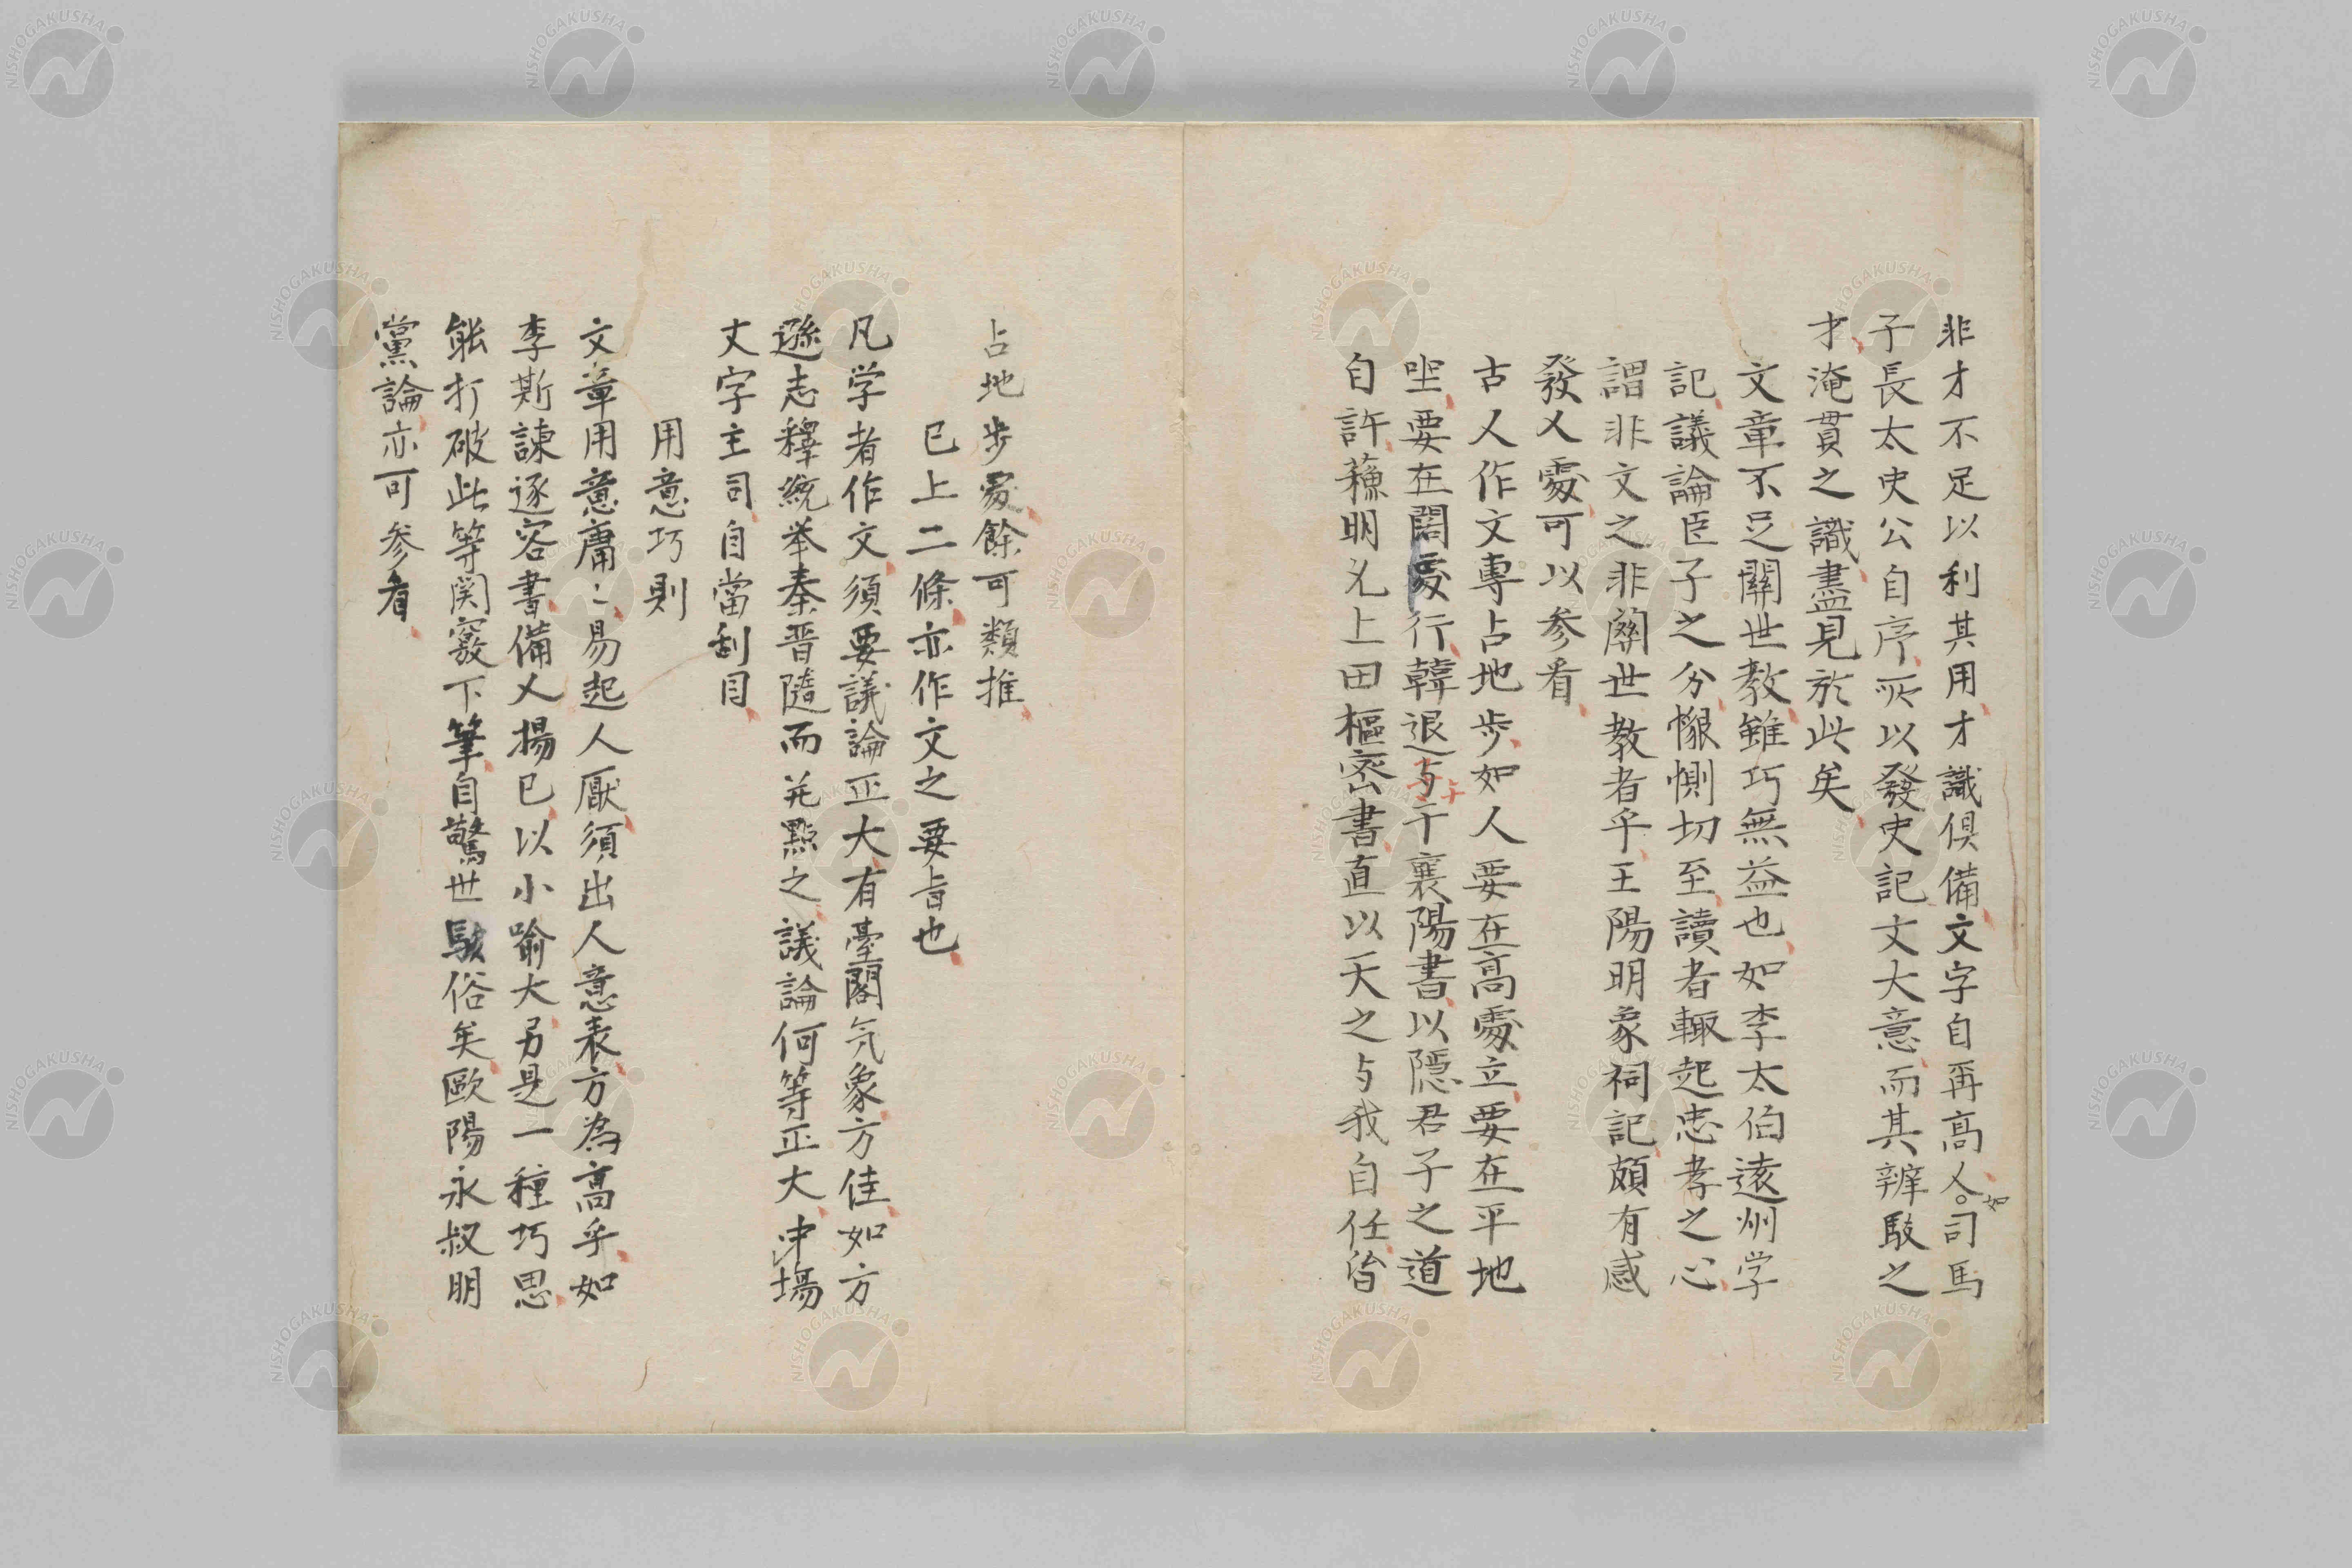 非才不足以利其用才識俱備文字自再高人。如司馬
子長太史公自序所以發史記文大意而其辨駁之
才淹貫之識盡見於此矣
文章不足關世教雖巧無益也如李太伯遠州学
記議論臣子之分懇惻切至讀者輙起忠孝之心
謂非文之非關世教者乎王陽明象祠記頗有感
發人處可以参看
古人作文専占地歩如人要在高處立要在平地
坐要在闊處行韓退与于襄陽書以隠君子之道
自許蘓明允上田樞密書直以天之与我自任皆
占地歩處餘可類推
已上二條亦作文之要旨也
凡学者作文須要議論正大有臺閣気象方佳如方
遜志釋統举秦晋隨而並黜之議論何等正大中場
文字主司自當刮目
用意巧則
文章用意庸〻易起人厭須出人意表方為高手如
李斯諫逐客書備人揚已以小喻大另是一種巧思
能打破此等関竅下筆自驚世駭俗矣歐陽永叔朋
黨論亦可参看
NISHOGAKUSHA